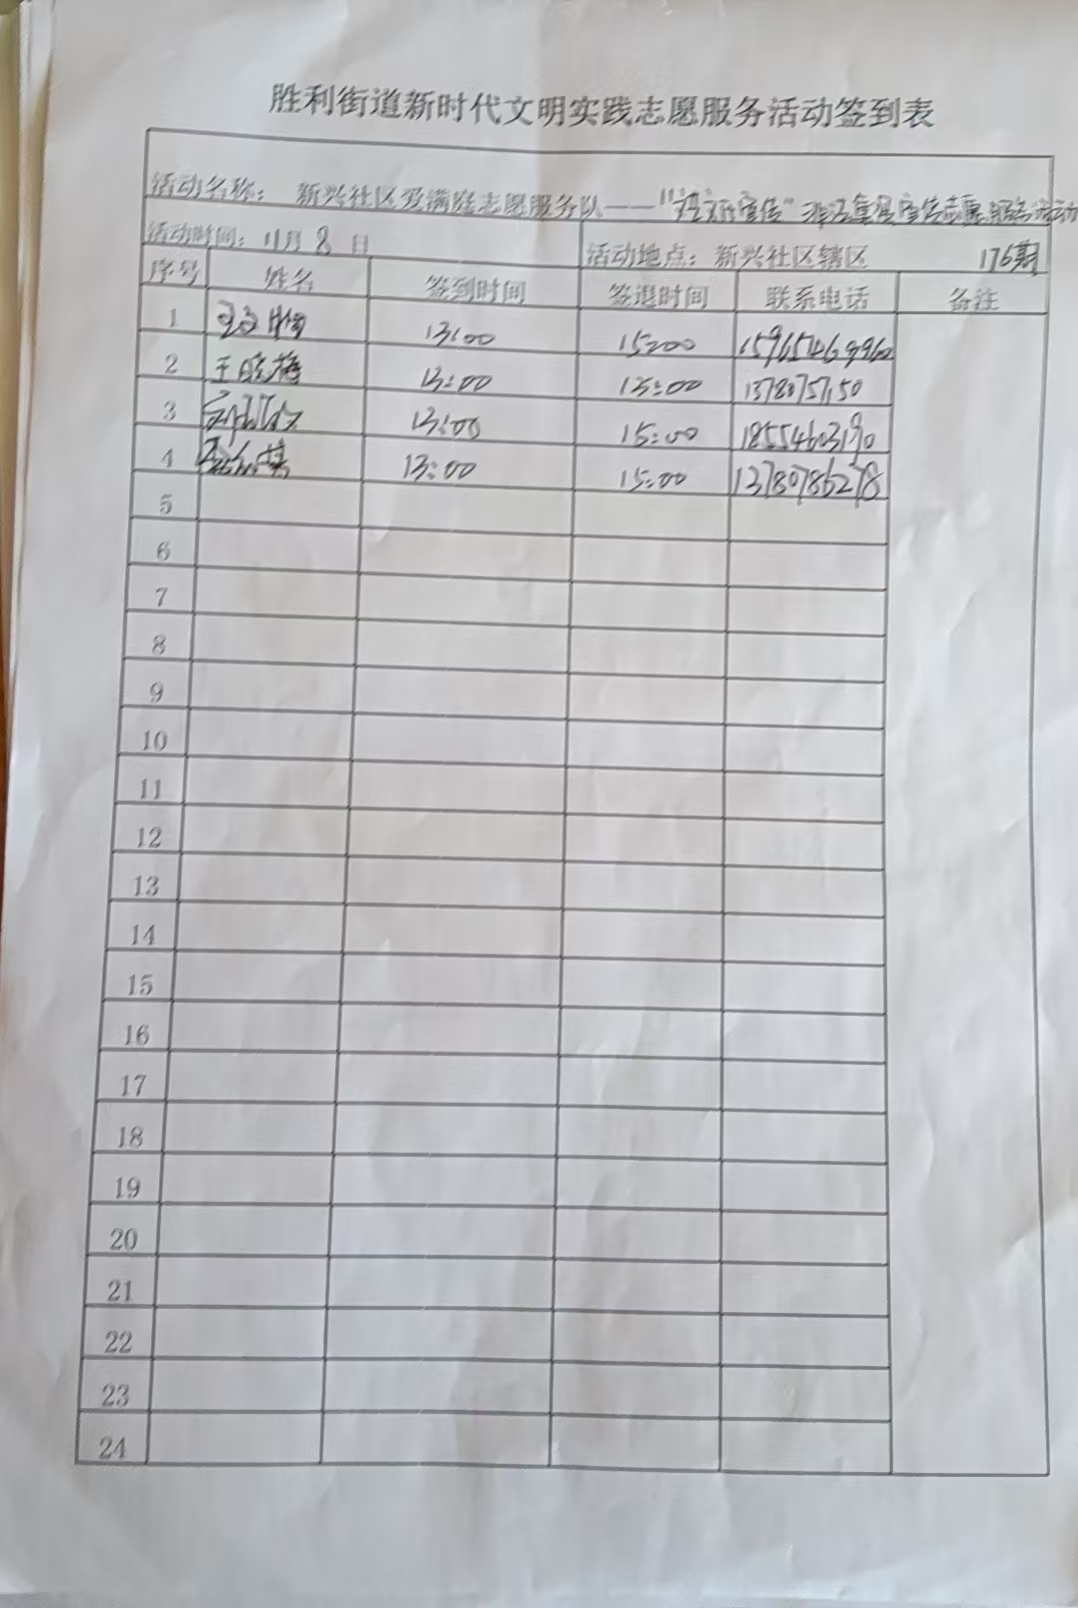 胜利街道新时代文明实践志愿服务活动签到表
活动名称： 新兴社区爱满庭志愿服务队——"宣传" 宣传志愿服务活动
活动时间：11月8日 活动地点：新兴社区辖区 176期
序号 姓名 签到时间 签退时间 联系电话 备注
1 13:00 15:00
2 王晓梅 13:00 15:00
3 13:00 15:00 18554603190
4 13:00 15:00 13780786278
5
6
7
8
9
10
11
12
13
14
15
16
17
18
19
20
21
22
23
24